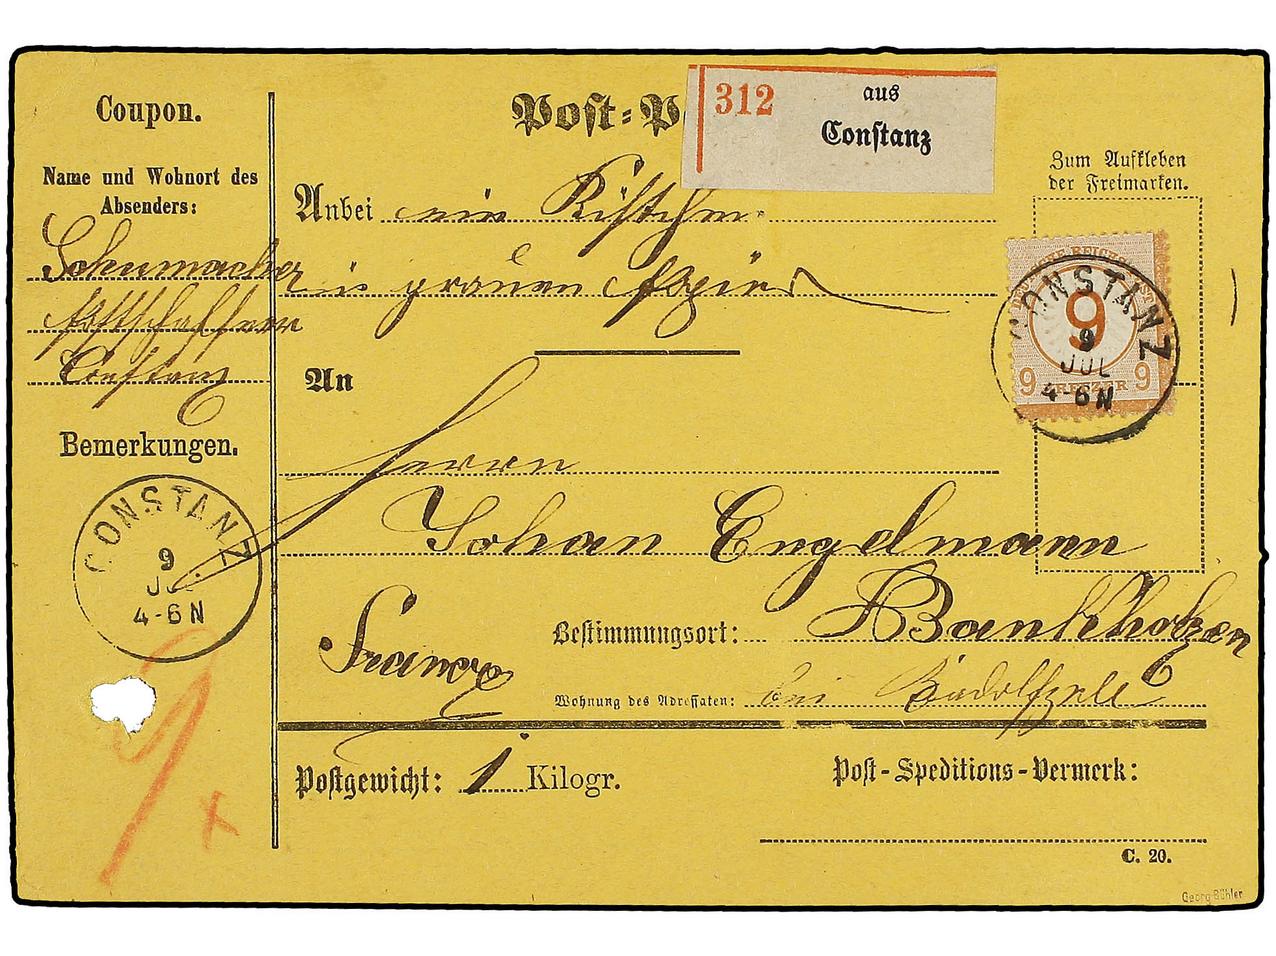 Coupon.
Name und Wohnort des
Absenders:
Schumacher
Constanz
Bemerkungen.
CONSTANZ
9
JUL
4-6 N
9
x
Post=P
312
aus
Constanz
Zum Aufkleben
der Freimarken.
Anbei ein Kistchen
in grauem Papier
An
Herrn
Johan Engelmann
Bestimmungsort: Bankholzen
Franco
Wohnung des Adressaten: bei Radolfzell
DEUTSCHE REICHS
9
9 KREUZER 9
CONSTANZ
9
JUL
4-6 N
Postgewicht: 1 Kilogr.
Post-Speditions-Vermerk:
C. 20.
Georg Bühler